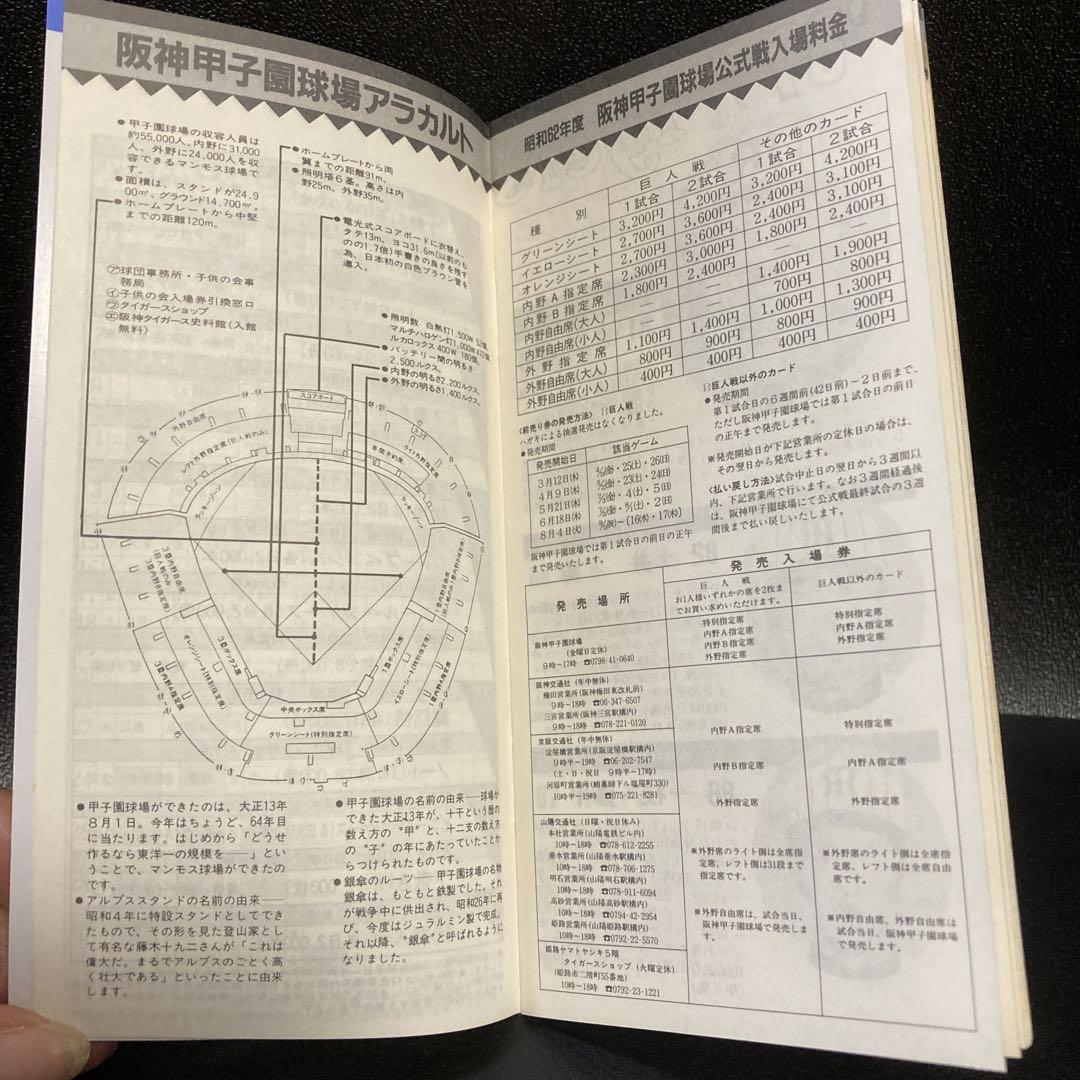 阪神甲子園球場アラカルト
●甲子園球場の収容人員は
約55,000人。内野に31,000
人、外野に24,000人を収
容できるマンモス球場で
す。
●面積は、スタンドが24,9
00㎡、グラウンド14,700㎡。
●ホームプレートから中堅
までの距離120m。
㋐球団事務所・子供の会事
務局
㋑子供の会入場券引換窓口
㋒タイガースショップ
㋓阪神タイガース史料館(入館
無料)
●ホームプレートから両
翼までの距離91m。
●照明塔6基。高さは内
野25m、外野35m。
●電光式スコアボードに衣替え。
タテ13m、ヨコ31.6m(以前のも
のの1.7倍)手書きの良さを残す
為、日本初の白色ブラウン管を
導入。
●照明数 白熱灯1,500W 52個、
マルチハロゲン灯1,000W 472個、
ルカロックス400W 180個。
●バッテリー間の明るさ
2,500ルクス。
●内野の明るさ2,200ルクス。
●外野の明るさ1,400ルクス。
スコアボード
外野自由席
レフト外野指定席(巨人戦のみ)
年間予約席
ライト外野指定席
ラッキーゾーン
ラッキーゾーン
3塁内野自由席
(巨人戦のみ
3塁内野B指定席)
1塁内野自由席
(巨人戦のみ1塁内野B指定席)
3塁ボックス席
オレンジシート(特別指定席)
3塁内野A指定席
1塁ボックス席
イエローシート(特別指定席)
1塁内野A指定席
中央ボックス席
グリーンシート(特別指定席)
●甲子園球場ができたのは、大正13年
8月1日。今年はちょうど、64年目
に当たります。はじめから「どうせ
作るなら東洋一の規模を――」とい
うことで、マンモス球場ができたの
です。
●アルプススタンドの名前の由来――
昭和4年に特設スタンドとしてでき
たもので、その形を見た登山家とし
て有名な藤木十九二さんが「これは
偉大だ。まるでアルプスのごとく高
く壮大である」といったことに由来
します。
●甲子園球場の名前の由来――球場が
できた大正13年が、十干という暦の
数え方の〝甲〟と、十二支の数え方
の〝子〟の年にあたっていたことか
らつけられたものです。
●銀傘のルーツ――甲子園球場の名物
銀傘は、もともと鉄製でした。それ
が戦争中に供出され、昭和26年に再
び、今度はジュラルミン製で完成。
それ以降、〝銀傘〟と呼ばれるように
なりました。
昭和62年度 阪神甲子園球場公式戦入場料金
種別 巨人戦 その他のカード
1試合 2試合 1試合 2試合
グリーンシート 3,200円 4,200円 3,200円 4,200円
イエローシート 2,700円 3,600円 2,400円 3,100円
オレンジシート 2,700円 3,600円 2,400円 3,100円
内野A指定席 2,300円 3,000円 1,800円 2,400円
内野B指定席 1,800円 2,400円 ― ―
内野自由席(大人) ― ― 1,400円 1,900円
内野自由席(小人) ― ― 700円 800円
外野指定席 1,100円 1,400円 1,000円 1,300円
外野自由席(大人) 800円 900円 800円 900円
外野自由席(小人) 400円 400円 400円 400円
〈前売り券の発売方法〉 巨人戦
ハガキによる抽選発売はなくなりました。
●発売期間
発売開始日 該当ゲーム
3月12日(木) ・25(土)・26(日)
4月9日(木) ・23(土)・24(日)
5月21日(木) ・4(土)・5(日)
6月18日(木) ・2(日)
8月4日(火) 〜(16(水)・17(木)
阪神甲子園球場では第1試合日の前日の正午
まで発売いたします。
巨人戦以外のカード
●発売期間
第1試合日の6週間前(42日前)−2日前まで、
ただし阪神甲子園球場では第1試合日の前日
の正午まで発売します。
※発売開始日が下記営業所の定休日の場合は、
その翌日から発売します。
〈払い戻し方法〉試合中止日の翌日から3週間以
内、下記営業所で行います。なお3週間経過後
は、阪神甲子園球場にて公式戦最終試合の3週
間後まで払い戻しいたします。
発売場所
発売入場券
巨人戦
お1人様いずれかの席を2枚ま
でお買い求めいただけます。
巨人戦以外のカード
阪神甲子園球場
(金曜日定休)
9時〜17時 ☎0798-41-0640
特別指定席
内野A指定席
内野B指定席
外野指定席
特別指定席
内野A指定席
外野指定席
阪神交通社(年中無休)
梅田営業所(阪神梅田東改札前)
9時〜18時 ☎06-347-6507
三宮営業所(阪神三宮駅構内)
9時〜18時 ☎078-221-0120
京阪交通社(年中無休)
淀屋橋営業所(京阪淀屋橋駅構内)
9時半〜19時 ☎06-202-7547
(土・日・祝日 9時半〜17時)
河原町営業所(蛸薬師下ル塩屋町330)
10時半〜19時 ☎075-221-8281
山陽交通社(日曜・祝日休み)
本社営業所(山陽電鉄ビル内)
10時〜18時 ☎078-612-2255
垂水営業所(山陽垂水駅構内)
10時〜18時 ☎078-706-1275
明石営業所(山陽明石駅構内)
10時〜18時 ☎078-911-6094
高砂営業所(山陽高砂駅構内)
10時〜18時 ☎0794-42-2954
姫路営業所(山陽姫路駅構内)
10時〜18時 ☎0792-22-5570
姫路ヤマトヤシキ5階
タイガースショップ(火曜定休)
(姫路市二階町55番地)
10時〜18時 ☎0792-23-1221
内野A指定席
内野B指定席
外野指定席
※外野席のライト側は全席指
定席、レフト側は31段まで
指定席です。
※外野自由席は、試合当日、
阪神甲子園球場で発売しま
す。
特別指定席
内野A指定席
外野指定席
※外野席のライト側は全席指
定席、レフト側は全席自由
席です。
※内野自由席、外野自由席は
試合当日、阪神甲子園球場
で発売します。